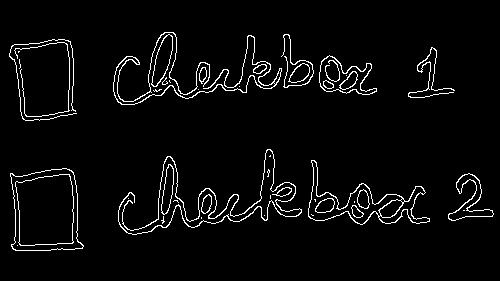 checkbox 1
checkbox 2